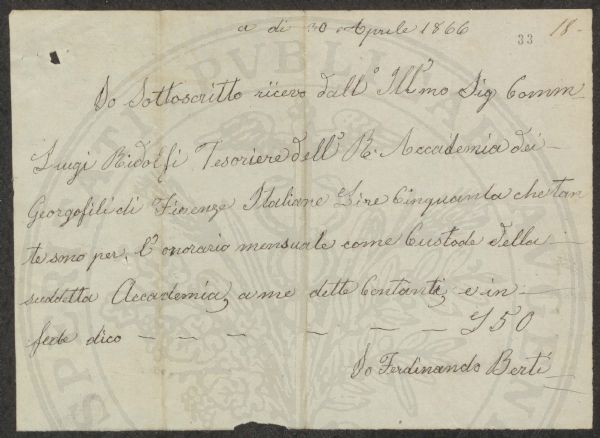 a di 30 Aprile 1866
33
18-
Io Sottoscritto ricevo dall' Ill.mo Sig Comm
Luigi Ridolfi Tesoriere dell' R. Accademia dei
Georgofili di Firenze Italiane Lire Cinquanta che tan
te sono per l'onorario mensuale come Custode della
suddetta Accademia, a me dette Contanti, e in
fede dico — — — — — — — £ 50
Io Ferdinando Berti